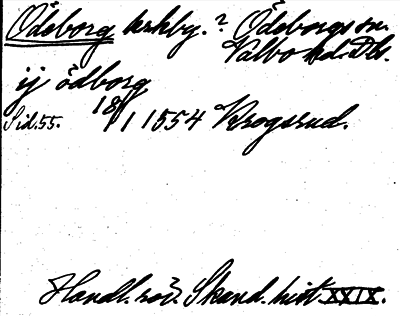 Ödeborg krkby.? Ödeborgs sn.
Valbo hd. Dls.
ij ödborg
Sid. 55. 18/1 1554 Krogsrud.
Handl. rör. Skand. hist XXIX.